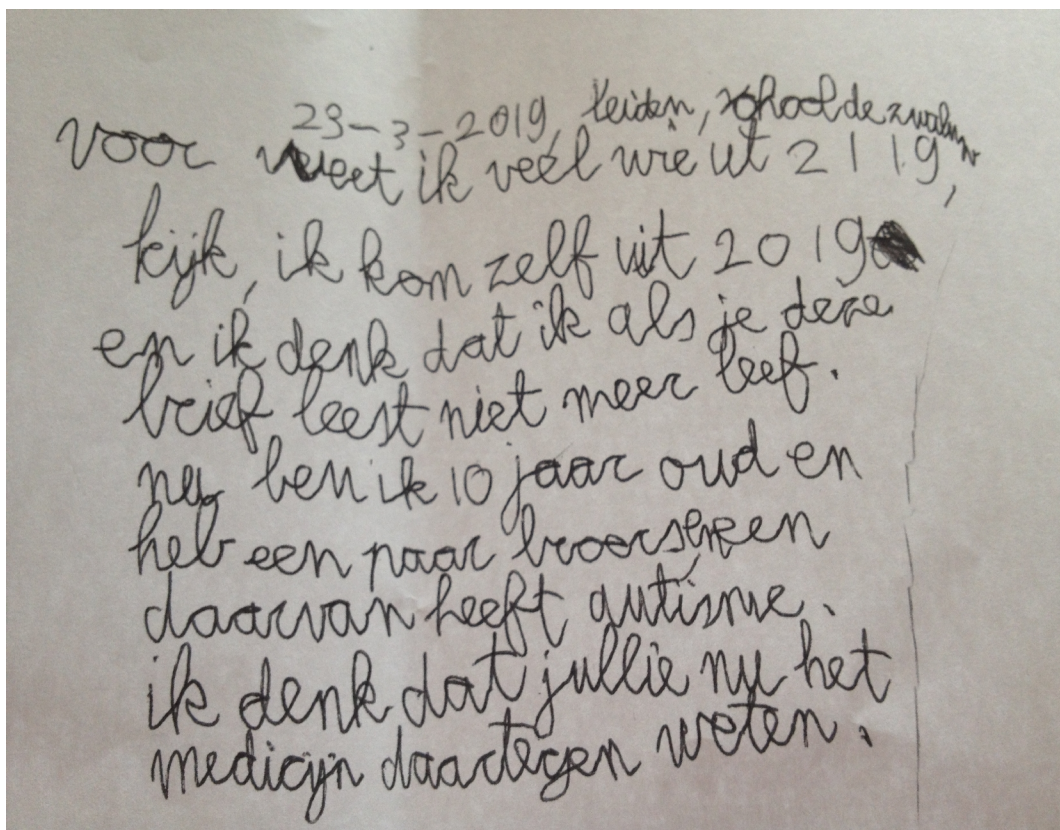 29-3-2019, Leiden, school de zwaluw
voor weet ik veel wie uit 2119,
kijk, ik kom zelf uit 2019
en ik denk dat ik als je deze
brief leest niet meer leef.
nu ben ik 10 jaar oud en
heb een paar broers, een
daarvan heeft autisme.
ik denk dat jullie nu het
medicijn daartegen weten.